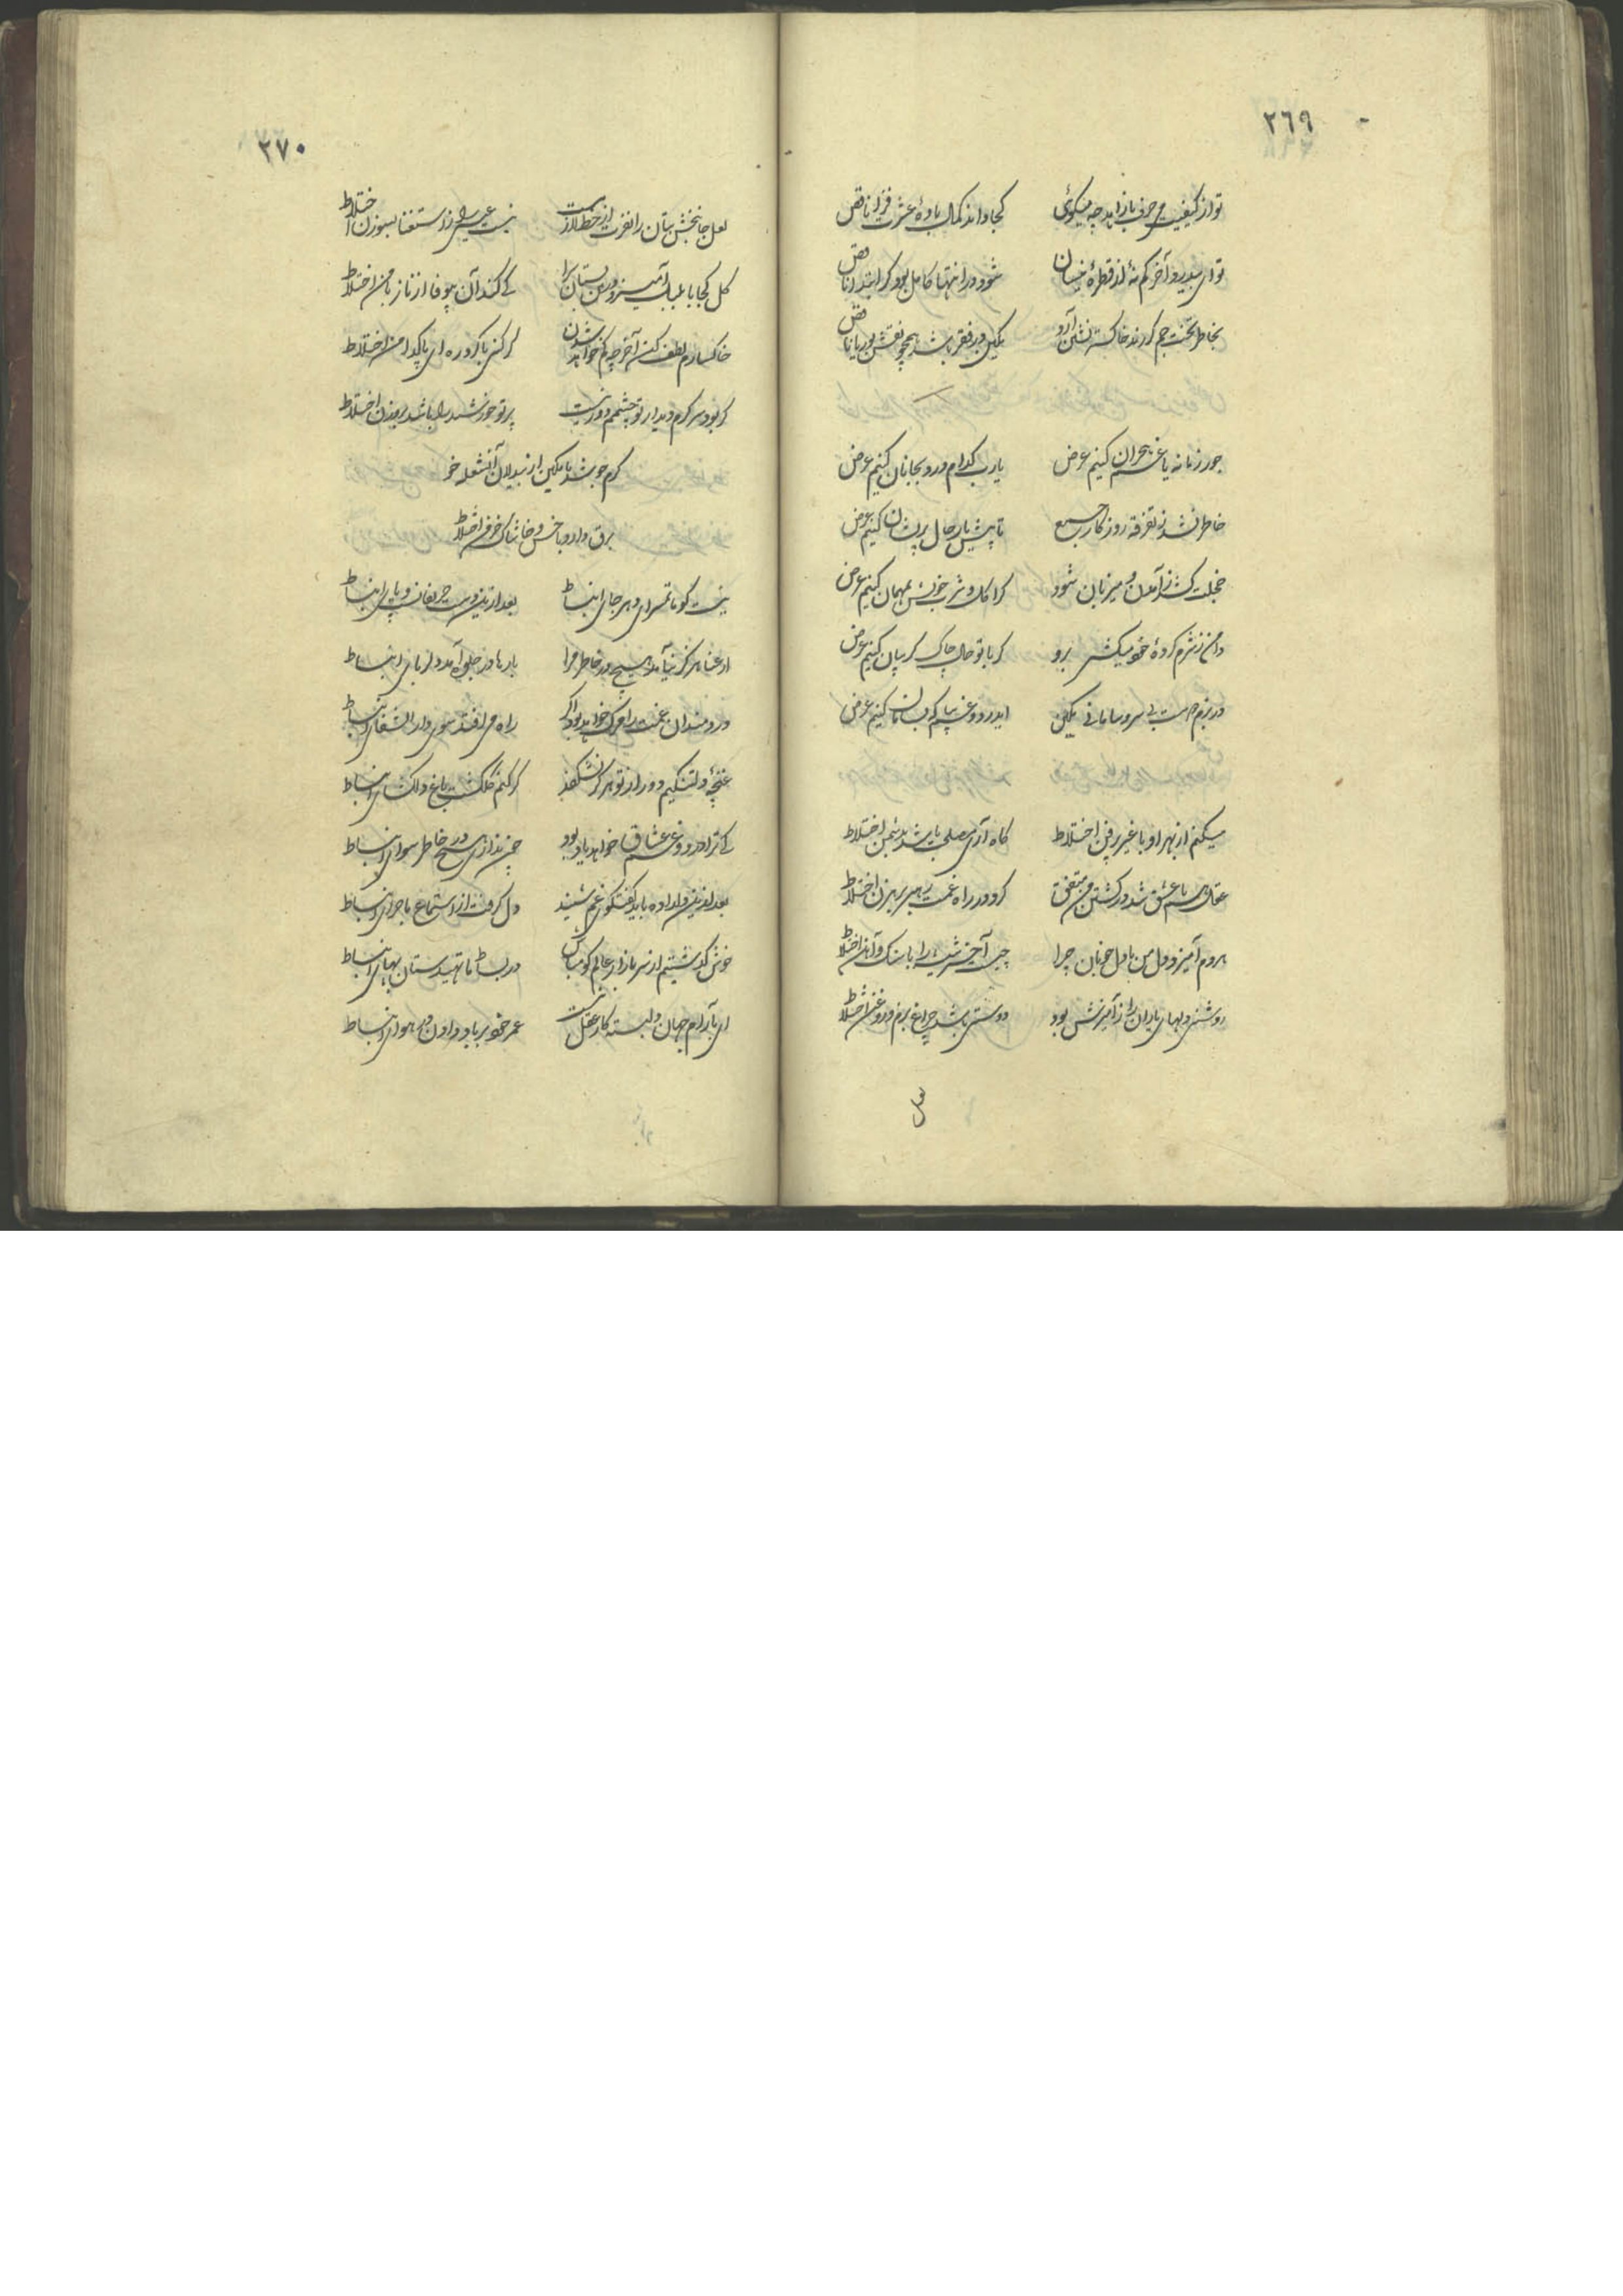 ٢٦٩
تو از کیفیت می حرف با زاهد چه میکوئی کجا داند کمال بادهٔ عشرت فزا ناقص
تو ای بیدرد آخر کم نهٔ از قطرهٔ نیسان شود در انتها کامل بود کر ابتدا ناقص
بخاطر تخت جم کی خاکستر نشین آرد یکین در فقر باشد همچو نقش بوریا ناقص
جور زمانه یا غم هجران کنیم عرض یارب کدام درد بجانان کنیم عرض
خاطر نشد ز تفرقه روزکار جمع تا پیش یار حال پریشان کنیم عرض
خجلت کش ز آمدن میزبان شود کر اکل و شرب خویش بمهمان کنیم عرض
دامن ز شرم کردهٔ خود میکشی برو کر با تو حال چاک کریبان کنیم عرض
در بزم بی سر و سامانی یکین ای درد و غم بیا که بسامان کنیم عرض
میکنم از بهر او با غیر پر فن اختلاط کاه آری مصلحت باشد بدشمن اختلاط
عقل هم با عشق شد در کشتن من متفق کرد در راه غمت رهبر برهزن اختلاط
هردم آمیزد دل من با دل خوبان چرا چیست آخر شیشه را با سنک و آهن اختلاط
روشنی دلهای یاران را ز آمیزش بود دوستی باشد چراغ بزم و روغن اختلاط
لعل
٢٧٠
لعل جانبخش بتان را نفرت از خط لازمست نیست عیسی را ز استغنا بسوزن اختلاط
کل کجا با بلبل آمیزد درین بستان سرا کی کند آن بیوفا از ناز با من اختلاط
خاکسارم لطف کن آخر چه کم خواهد شدن کر کنی با کرد ره ای پاکدامن اختلاط
کر بود سرکرم دیدار تو چشمم دور نیست پرتو خورشید را باشد بروزن اختلاط
کرم جوشد با یکین از بیدلان آن شعله خو
برق دارد با خس و خاشاک خرمن اختلاط
نیست کو ماتمسرای دهر جای انبساط بعد ازین دست حریفان و پای انبساط
از غنا هرکز نیامد هیچ در خاطر مرا بارها در جلوه آمد دلربای انبساط
دردمندان غمت را مرک خواهد بود اکر راه می افتد سوی دار الشفای انبساط
غنچهٔ دلتنکیم دور از تو هرکز نشکفد کر کنم کلکشت باغ دلکشای انبساط
کی ترا درد و غم عشاق خواهد یاد بود چون نداری هیچ در خاطر سوای انبساط
بعد ازین دلداده باید کفتکوی غم شنید دل کرفت از استماع ماجرای انبساط
خوش کذشتیم از سر بازار عالم کو مباش در بساط ما تهیدستان بهای انبساط
ای بآرام جهان دلبسته کار عقل نیست عمر خود بر باد دادن در هوای انبساط